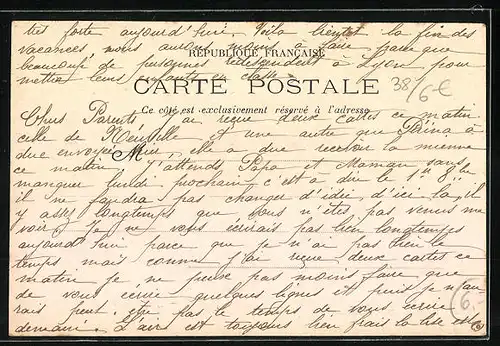 très forte aujourd'hui. Voila bientot la fin des
vacances nous aurons moins à faire parce que
RÉPUBLIQUE FRANÇAISE
beaucoup de personnes redescendent à Lyon pour
mettre leurs enfants en classe.
CARTE POSTALE
38/6€
Ce côté est exclusivement réservé à l'adresse
Chers Parents J'ai reçue deux cartes ce matin
celle de Neuville et une autre que Rina à
due envoyée hier, elle a due recevoir la mienne
ce matin. J'attends Papa et Maman sans
manquer lundi prochain c'est à dire le 1er 8bre
il ne faudra pas changer d'idée d'ici la, il
y assez longtemps que vous n'êtes pas venus me
voir. Je ne vous écrirais pas bien longtemps
aujourd'hui parce que je n'ai pas bien le
temps mais comme j'ai reçue deux cartes ce
matin je ne peux pas moins faire que
de vous écrire quelques lignes et puis je n'au
rais peut être pas le temps de vous écrire
demain. L'airs est toujours bien frais la bise est
6.-